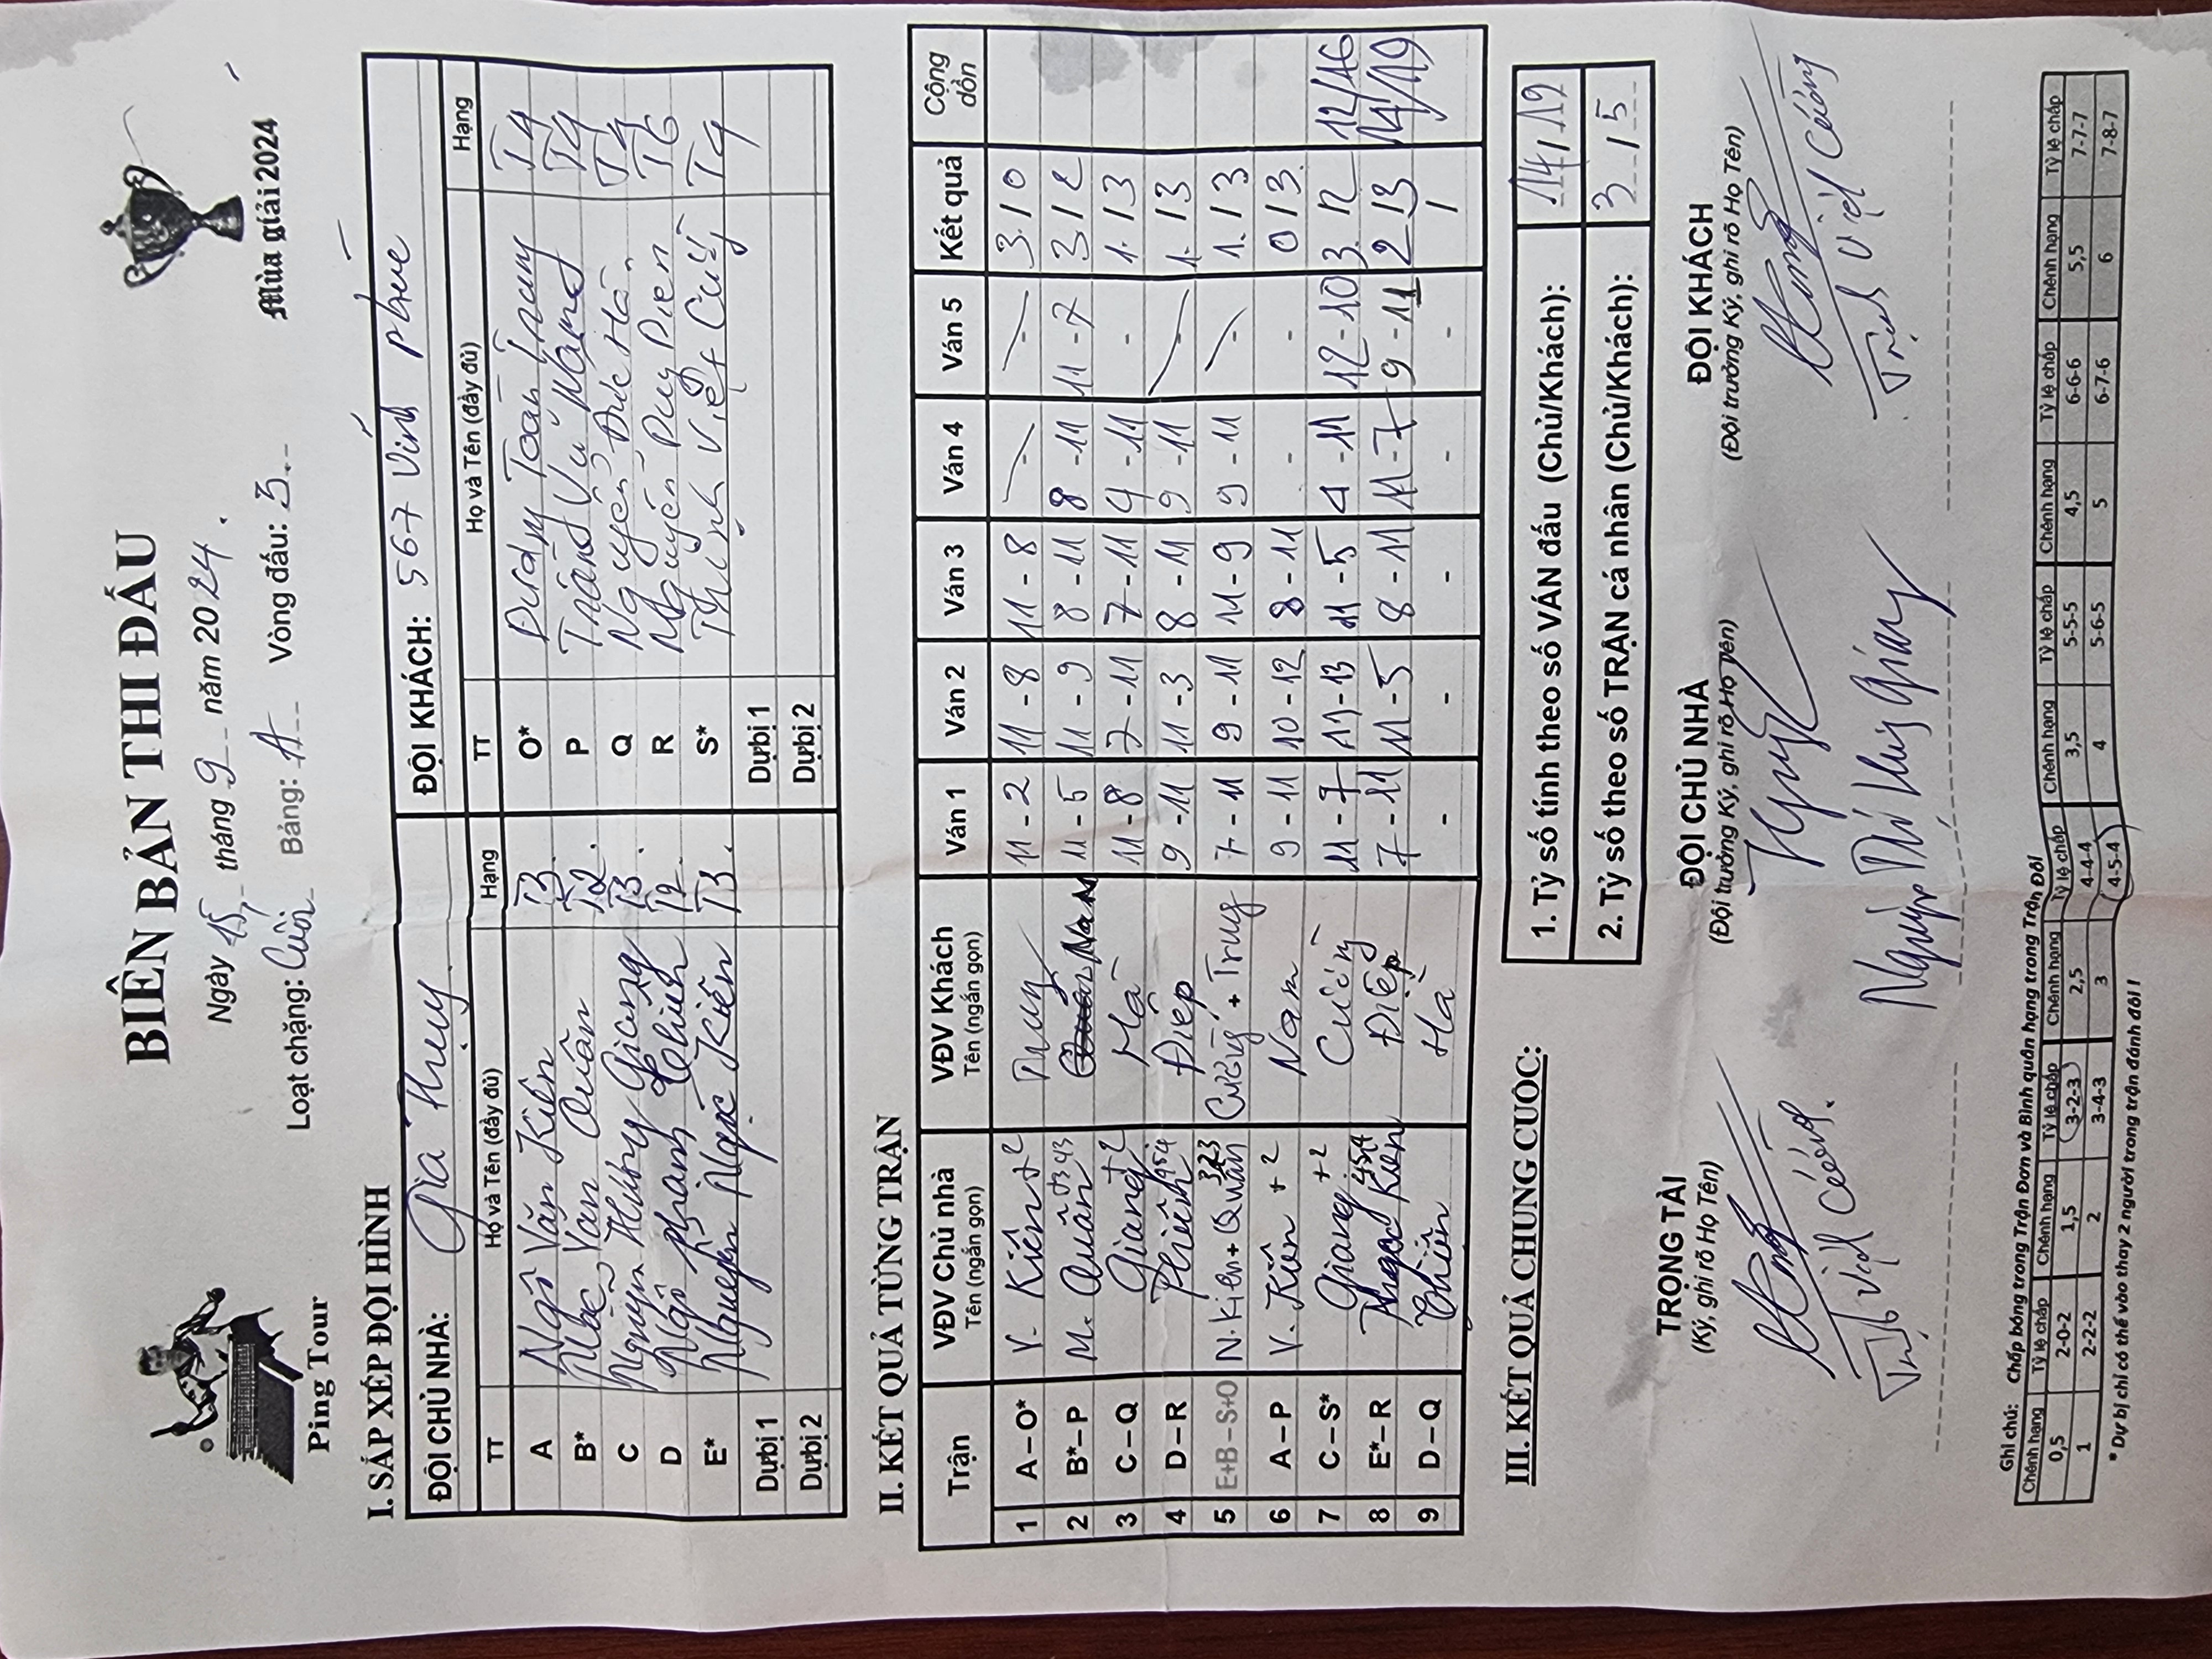 BIÊN BẢN THI ĐẤU
Ngày 15 tháng 9 năm 2024.
Loạt chặng: Cuối Bảng: A Vòng đấu: 5
Ping Tour
Mùa giải 2024
I. SẮP XẾP ĐỘI HÌNH
ĐỘI CHỦ NHÀ: Gia Thụy ĐỘI KHÁCH: 567 Vĩnh Phúc
TT Họ và Tên (đầy đủ) Hạng TT Họ và Tên (đầy đủ) Hạng
A Ngô Văn Kiên T3. O* Toàn Trung T4
B* Mạc Van Quân T2. P Vũ Nam T4
C Nguyễn Giang T3. Q Nguyễn Đức Hà T4
D Ngô Phạm Chiến T2. R Nguyễn Duy Điệp T6
E* Nguyễn Ngọc Kiên T3. S* Trịnh Việt Cường T4
Dự bị 1 Dự bị 1
Dự bị 2 Dự bị 2
II. KẾT QUẢ TỪNG TRẬN
Trận VĐV Chủ nhà Tên (ngắn gọn) VĐV Khách Tên (ngắn gọn) Ván 1 Ván 2 Ván 3 Ván 4 Ván 5 Kết quả Cộng dồn
1 A – O* V. Kiên +2 Trung 11 - 2 11 - 8 11 - 8 3 / 0
2 B* – P M. Quân +343 Nam 11 - 5 11 - 9 8 - 11 8 - 11 11 - 7 3 / 2
3 C – Q Giang +2 Hà 11 - 8 7 - 11 7 - 11 4 - 11 - 1 / 3
4 D – R Điệp 9 - 11 11 - 3 8 - 11 9 - 11 1 / 3
5 E+B – S+O N. Kiên + Quân 323 Cường + Trung 7 - 11 9 - 11 11 - 9 9 - 11 - 1 / 3
6 A – P V. Kiên + 2 Nam 9 - 11 10 - 12 8 - 11 - - 0 / 3
7 C – S* Giang +2 Cường 11 - 7 11 - 13 11 - 5 4 - 11 12 - 10 3 / 2 12/16
8 E* – R Ngọc Kiên 454 Điệp 7 - 11 11 - 5 8 - 11 11 - 7 9 - 11 2 / 3 14/19
9 D – Q Chiến Hà - - - - - /
III. KẾT QUẢ CHUNG CUỘC:
1. Tỷ số tính theo số VÁN đấu (Chủ/Khách): 14 / 19
2. Tỷ số theo số TRẬN cá nhân (Chủ/Khách): 3 / 5
TRỌNG TÀI ĐỘI CHỦ NHÀ ĐỘI KHÁCH
(Ký, ghi rõ Họ Tên) (Đội trưởng Ký, ghi rõ Họ Tên) (Đội trưởng Ký, ghi rõ Họ Tên)
Trịnh Việt Cường Giang Trịnh Việt Cường
Ghi chú: Chấp bóng trong Trận Đơn và Bình quân hạng trong Trận Đôi
Chênh hạng Tỷ lệ chấp Chênh hạng Tỷ lệ chấp Chênh hạng Tỷ lệ chấp Chênh hạng Tỷ lệ chấp Chênh hạng Tỷ lệ chấp Chênh hạng Tỷ lệ chấp
0,5 2-0-2 1,5 3-2-3 2,5 4-4-4 3,5 5-5-5 4,5 6-6-6 5,5 7-7-7
1 2-2-2 2 3-4-3 3 4-5-4 4 5-6-5 5 6-7-6 6 7-8-7
* Dự bị chỉ có thể vào thay 2 người trong trận đánh đôi !